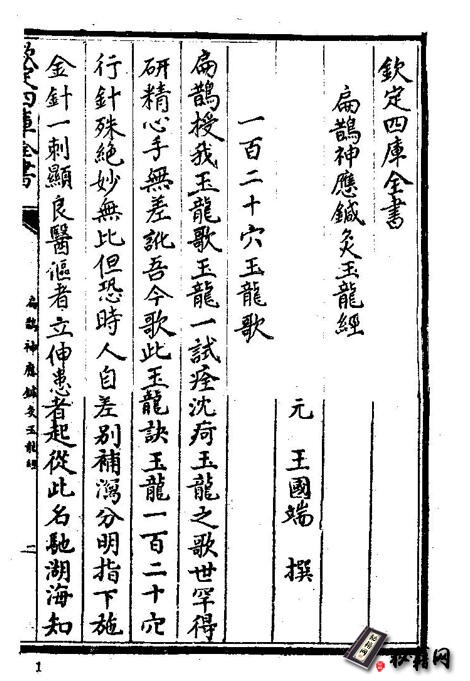 欽定四庫全書
扁鵲神應鍼灸玉龍經
元 王國端 撰
一百二十穴玉龍歌
扁鵲授我玉龍歌玉龍一試痊沈疴玉龍之歌世罕得
研精心手無差訛吾今歌此玉龍訣玉龍一百二十穴
行針殊絕妙無比但恐時人自差別補瀉分明指下施
金針一刺顯良醫傴者立伸患者起從此名馳湖海知
欽定四庫全書
扁鵲神應鍼灸玉龍經
二
1
秘籍网